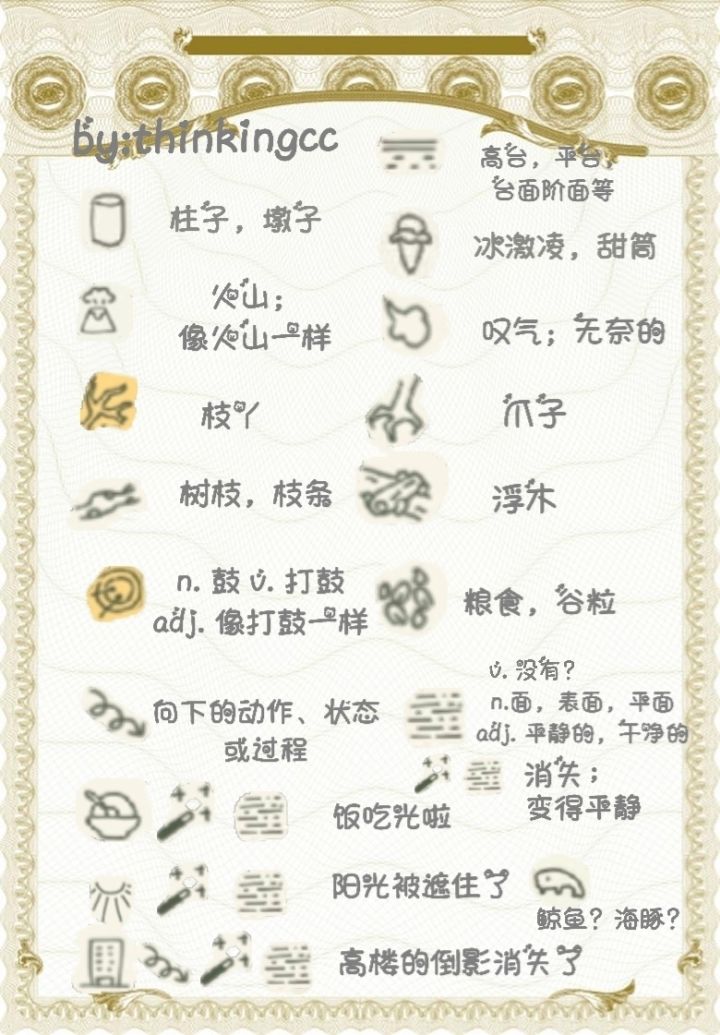 by:thinkingcc
高台，平台，
台面阶面等
柱子，墩子
冰激凌，甜筒
火山；
像火山一样
叹气；无奈的
枝丫
爪子
树枝，枝条
浮木
n. 鼓 v. 打鼓
adj. 像打鼓一样
粮食，谷粒
向下的动作、状态
或过程
v. 没有？
n.面，表面，平面
adj. 平静的，干净的
消失；
变得平静
饭吃光啦
阳光被遮住了
鲸鱼？海豚？
高楼的倒影消失了